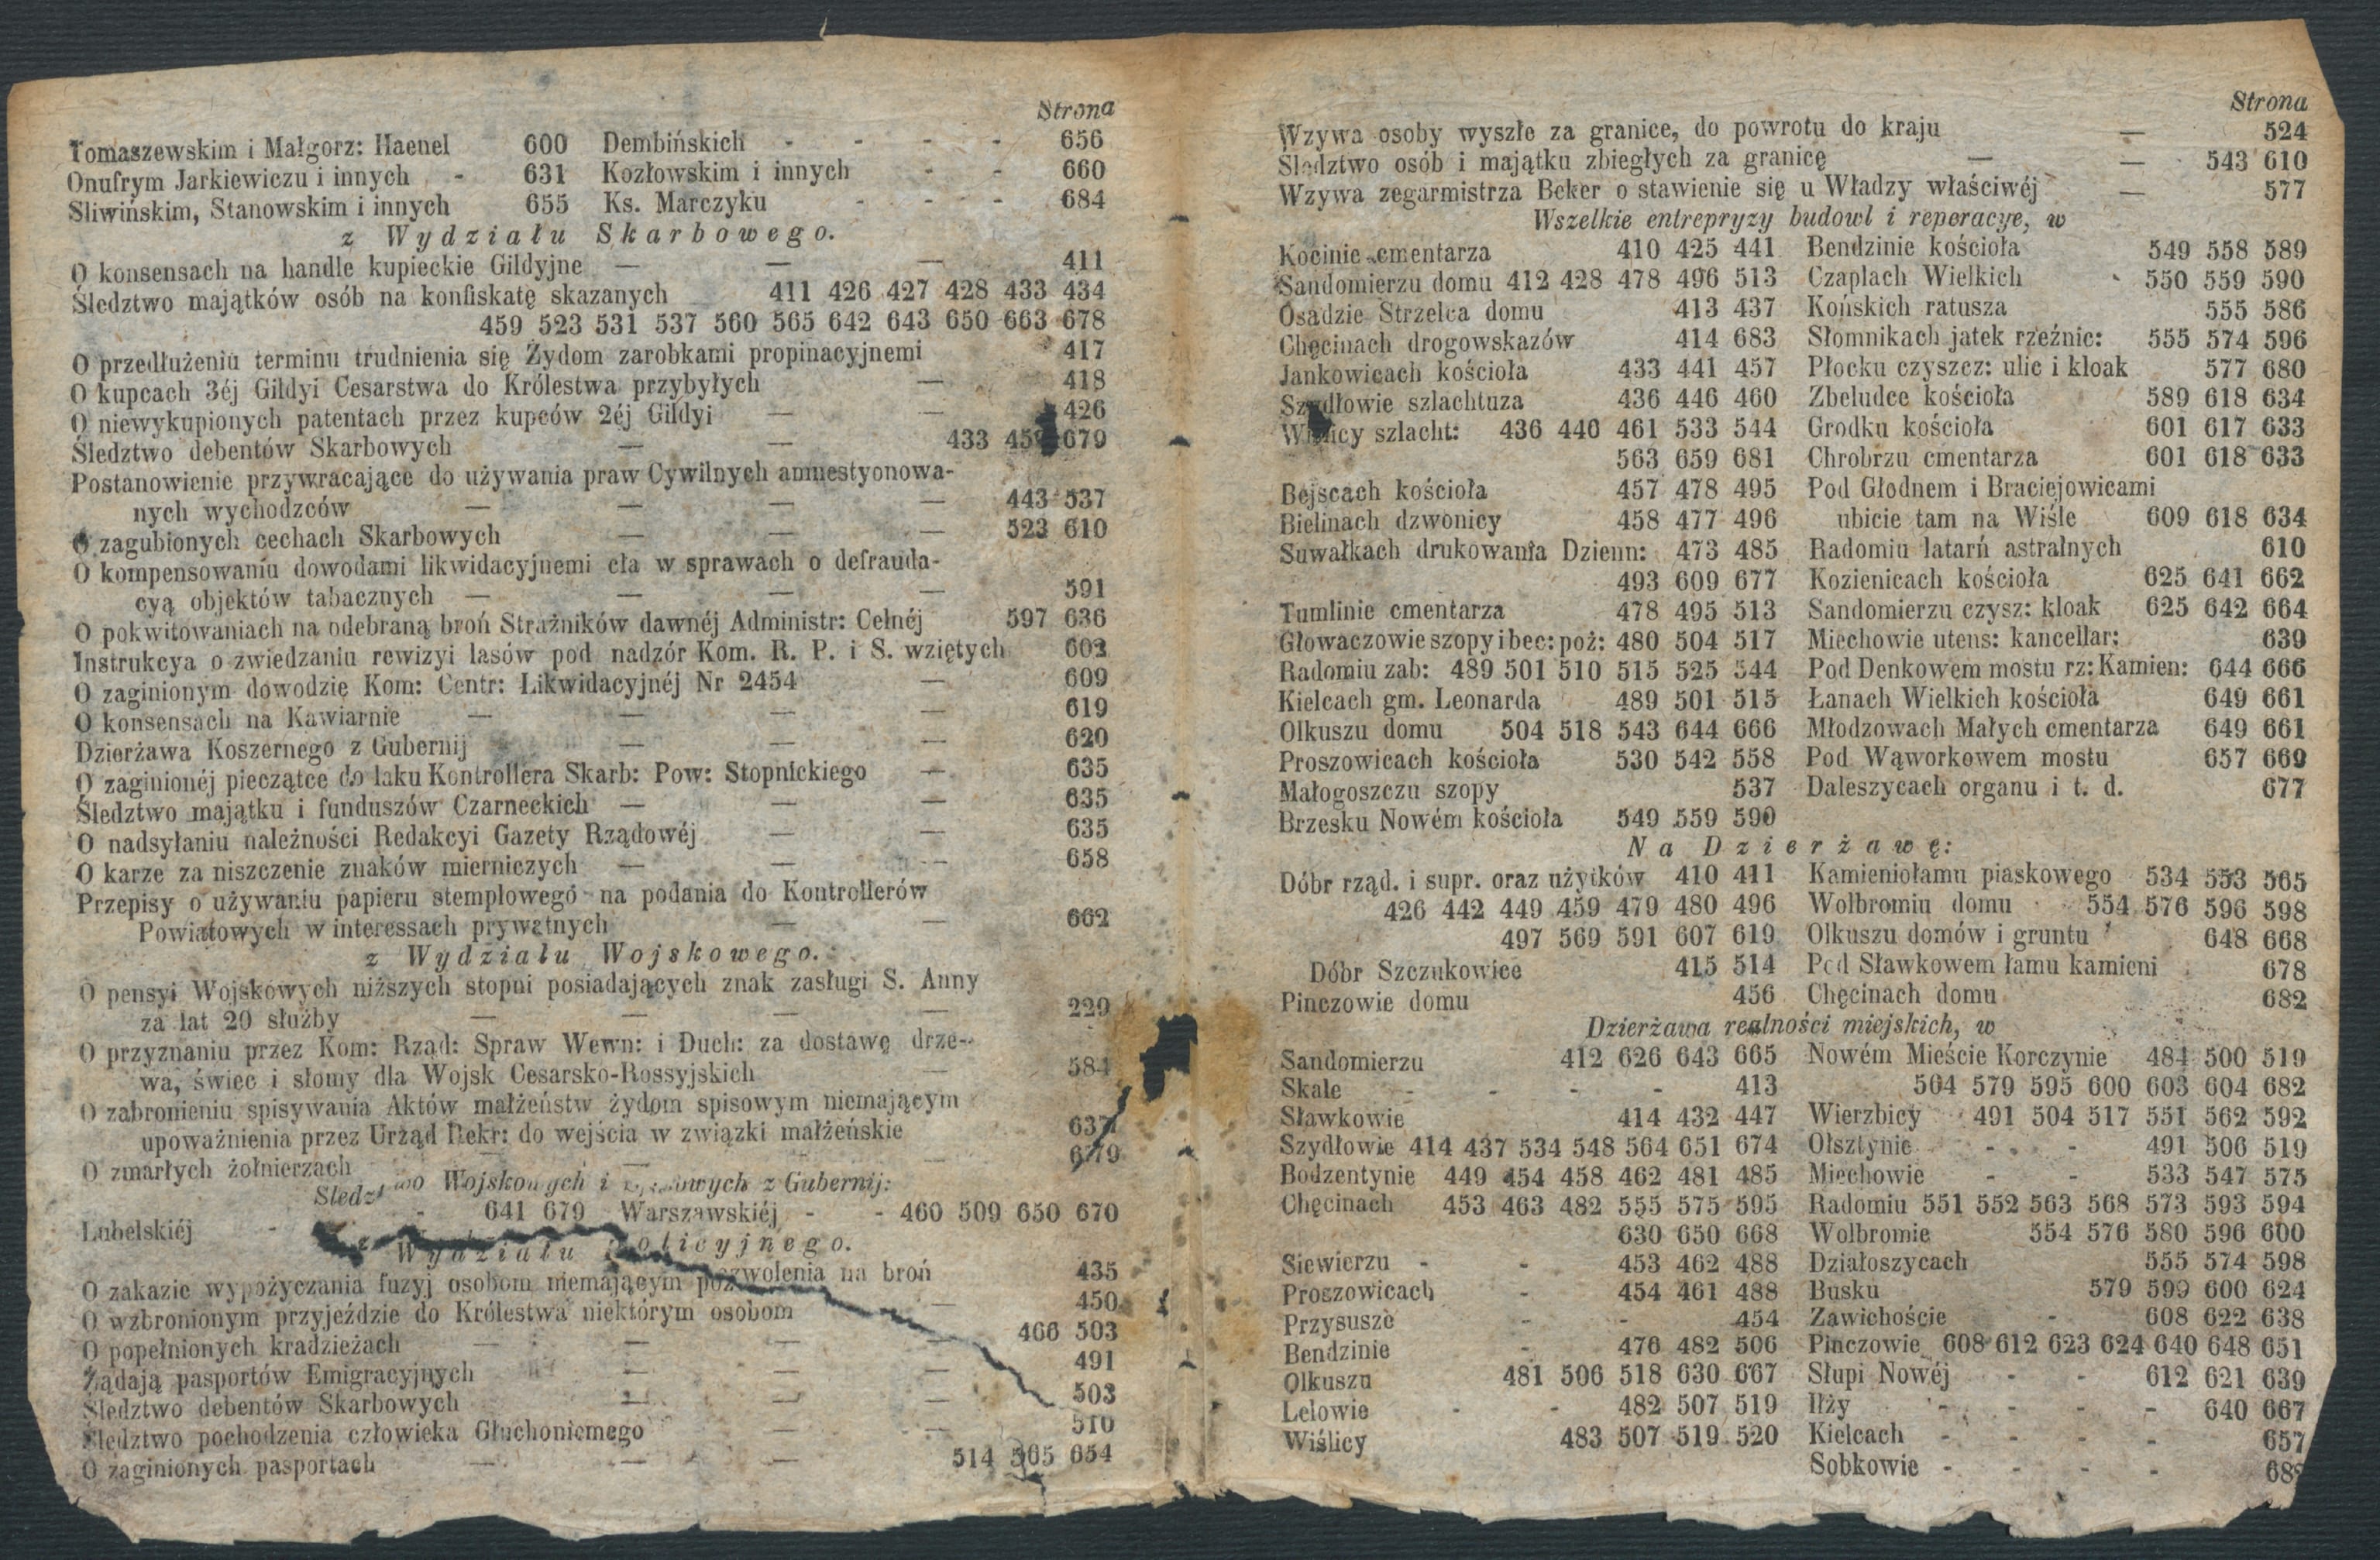 Strona
Tomaszewskim i Małgorz: Haenel 600 Dembińskich - - - - 656
Onufrym Jarkiewiczu i innych - 631 Kozłowskim i innych - - 660
Sliwińskim, Stanowskim i innych 655 Ks. Marczyku - - - 684
z Wydziału Skarbowego.
O konsensach na handle kupieckie Gildyjne — — — 411
Śledztwo majątków osób na konfiskatę skazanych 411 426 427 428 433 434
459 523 531 537 560 565 642 643 650 663 678
O przedłużeniu terminu trudnienia się Żydom zarobkami propinacyjnemi 417
O kupcach 3éj Gildyi Cesarstwa do Królestwa przybyłych — 418
O niewykupionych patentach przez kupców 2éj Gildyi — — 426
Śledztwo debentów Skarbowych — — 433 679
Postanowienie przywracające do używania praw Cywilnych amnestyonowa-
nych wychodzców — — — — 443 537
O zagubionych cechach Skarbowych — — — 523 610
O kompensowaniu dowodami likwidacyjnemi cła w sprawach o defrauda-
cyą objektów tabacznych — — — — 591
O pokwitowaniach na odebraną broń Strażników dawnéj Administr: Celnéj 597 636
Instrukcya o zwiedzaniu rewizyi lasów pod nadzór Kom. R. P. i S. wziętych 602
O zaginionym dowodzie Kom: Centr: Likwidacyjnéj Nr 2454 — 609
O konsensach na Kawiarnie — — — — 619
Dzierżawa Koszernego z Gubernij — — — 620
O zaginionéj pieczątce do laku Kontrollera Skarb: Pow: Stopnickiego — 635
Śledztwo majątku i funduszów Czarneckich — — — 635
O nadsyłaniu należności Redakcyi Gazety Rządowéj — — 635
O karze za niszczenie znaków mierniczych — — — 658
Przepisy o używaniu papieru stemplowego na podania do Kontrollerów
Powiatowych w interessach prywatnych — — 662
z Wydziału Wojskowego.
O pensyi Wojskowych niższych stopni posiadających znak zasługi S. Anny
za lat 20 służby — — — — 229
O przyznaniu przez Kom: Rząd: Spraw Wewn: i Duch: za dostawę drze-
wa, świec i słomy dla Wojsk Cesarsko-Rossyjskich — 584
O zabronieniu spisywania Aktów małżeństw żydom spisowym niemającym
upoważnienia przez Urząd Rekr: do wejścia w związki małżeńskie 637
O zmarłych żołnierzach — — — 679
Wojskowych i z Gubernij:
Lubelskiéj - - 641 679 Warszawskiéj - - 460 509 650 670
z Wydziału Policyjnego.
O zakazie wypożyczania fuzyj osobom niemającym pozwolenia na broń 435
O wzbronionym przyjeździe do Królestwa niektórym osobom — 450
O popełnionych kradzieżach — — — — 466 503
Żądają pasportów Emigracyjnych — — — 491
Śledztwo debentów Skarbowych — — — 503
Śledztwo pochodzenia człowieka Głuchoniemego — — 510
O zaginionych pasportach — — — 514 565 654
Strona
Wzywa osoby wyszłe za granice, do powrotu do kraju — 524
Śledztwo osób i majątku zbiegłych za granicę — — 543 610
Wzywa zegarmistrza Beker o stawienie się u Władzy właściwéj — 577
Wszelkie entrepryzy budowl i reperacye, w
Kocinie cmentarza 410 425 441 Bendzinie kościoła 549 558 589
Sandomierzu domu 412 428 478 496 513 Czaplach Wielkich 550 559 590
Osadzie Strzelca domu 413 437 Końskich ratusza 555 586
Chęcinach drogowskazów 414 683 Słomnikach jatek rzeźnic: 555 574 596
Jankowicach kościoła 433 441 457 Płocku czyszcz: ulic i kloak 577 680
Szydłowie szlachtuza 436 446 460 Zbeludce kościoła 589 618 634
Wiślicy szlacht: 436 440 461 533 544 Grodku kościoła 601 617 633
563 659 681 Chrobrzu cmentarza 601 618 633
Bejscach kościoła 457 478 495 Pod Głodnem i Braciejowicami
Bielinach dzwonicy 458 477 496 ubicie tam na Wiśle 609 618 634
Suwałkach drukowania Dzienn: 473 485 Radomiu latarń astralnych 610
493 609 677 Kozienicach kościoła 625 641 662
Tumlinie cmentarza 478 495 513 Sandomierzu czysz: kloak 625 642 664
Głowaczowie szopy i bec: poż: 480 504 517 Miechowie utens: kancellar: 639
Radomiu zab: 489 501 510 515 525 544 Pod Denkowem mostu rz: Kamien: 644 666
Kielcach gm. Leonarda 489 501 515 Łanach Wielkich kościoła 649 661
Olkuszu domu 504 518 543 644 666 Młodzowach Małych cmentarza 649 661
Proszowicach kościoła 530 542 558 Pod Wąworkowem mostu 657 669
Małogoszczu szopy 537 Daleszycach organu i t. d. 677
Brzesku Nowém kościoła 549 559 590
Na Dzierżawę:
Dóbr rząd. i supr. oraz użytków 410 411 Kamieniołamu piaskowego 534 553 565
426 442 449 459 479 480 496 Wolbromiu domu 554 576 596 598
497 569 591 607 619 Olkuszu domów i gruntu 648 668
Dóbr Szczukowice 415 514 Pod Sławkowem łamu kamieni 678
Pinczowie domu 456 Chęcinach domu 682
Dzierżawa realności miejskich, w
Sandomierzu 412 626 643 665 Nowém Mieście Korczynie 484 500 519
Skale - - - 413 564 579 595 600 603 604 682
Sławkowie 414 432 447 Wierzbicy 491 504 517 551 562 592
Szydłowie 414 437 534 548 564 651 674 Olsztynie - - - 491 506 519
Bodzentynie 449 454 458 462 481 485 Miechowie - - 533 547 575
Chęcinach 453 463 482 555 575 595 Radomiu 551 552 563 568 573 593 594
630 650 668 Wolbromie 554 576 580 596 600
Siewierzu - - 453 462 488 Działoszycach 555 574 598
Proszowicach - 454 461 488 Busku 579 599 600 624
Przysusze - - 454 Zawichoście - 608 622 638
Bendzinie - 476 482 506 Pinczowie 608 612 623 624 640 648 651
Olkuszu 481 506 518 630 667 Słupi Nowéj - - 612 621 639
Lelowie - - 482 507 519 Iłży - - - - 640 667
Wiślicy 483 507 519 520 Kielcach - - - - 657
Sobkowie - - - -